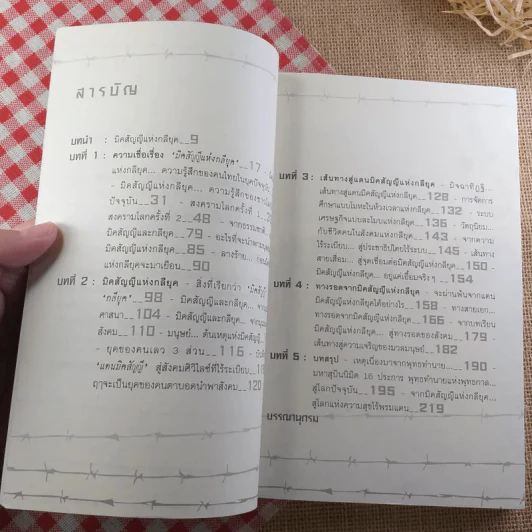 สารบัญ
บทนำ : มิคสัญญีแห่งกลียุค__9
บทที่ 1 : ความเชื่อเรื่อง "มิคสัญญีแห่งกลียุค"__17
แห่งกลียุค... ความรู้สึกของคนไทยในยุคปัจจุบัน
- มิคสัญญีแห่งกลียุค... ความรู้สึกของชาว
ปัจจุบัน__31 - สงครามโลกครั้งที่ 1
สงครามโลกครั้งที่ 2__48 - จากธรรมชาติ
มิคสัญญีและกลียุค__79 - อะไรที่จะนำพา
มิคสัญญีแห่งกลียุค__85 - ลางร้าย...
แห่งกลียุคจะมาเยือน__90
บทที่ 2 : มิคสัญญีแห่งกลียุค - สิ่งที่เรียกว่า "มิคสัญญี
กลียุค"__98 - มิคสัญญีและกลียุค...
ศาสนา__104 - มิคสัญญีและกลียุค...
สังคม__110 - มนุษย์... ต้นเหตุแห่งมิคสัญญี
- ยุคของคนเลว 3 ส่วน__116
"แดนมิคสัญญี" สู่สังคมศิวิไลซ์ที่ไร้ระเบียบ
ฤๅจะเป็นยุคของคนตาบอดนำพาสังคม__120
บทที่ 3 : เส้นทางสู่แดนมิคสัญญีแห่งกลียุค - มิจฉาทิฏฐิ...
เส้นทางสู่แดนมิคสัญญีแห่งกลียุค__128 - การจัดการ
ศึกษาแบบโมฆะในห้วงเวลาแห่งกลียุค__132 - ระบบ
เศรษฐกิจแบบละโมบแห่งกลียุค__136 - วัตถุนิยม...
กับชีวิตคนในสังคมแห่งกลียุค__143 - จากความ
ไร้ระเบียบ... สู่ประชาธิปไตยไร้ระบบ__145 - เส้นทาง
สายเสื่อม... สู่จุดเชื่อมต่อมิคสัญญีแห่งกลียุค__150 -
มิคสัญญีแห่งกลียุค... อยู่แค่เอื้อมจริงๆ__154
บทที่ 4 : ทางรอดจากมิคสัญญีแห่งกลียุค - จะผ่านพ้นจากแดน
มิคสัญญีแห่งกลียุคได้อย่างไร__158 - ทางสายเอก...
ทางรอดจากมิคสัญญีแห่งกลียุค__166 - จากบทเรียน
มิคสัญญีแห่งกลียุค... สู่ทางรอดของสังคม__179 -
เส้นทางสู่ความเจริญของมวลมนุษย์__182
บทที่ 5 : บทสรุป - เหตุเนื่องมาจากพุทธทำนาย...__190 -
มหาสุบินนิมิต 16 ประการ พุทธทำนายแห่งพุทธกาล...
สู่โลกปัจจุบัน__195 - จากมิคสัญญีแห่งกลียุค...
สู่โลกแห่งความสุขไร้พรมแดน__219
บรรณานุกรม